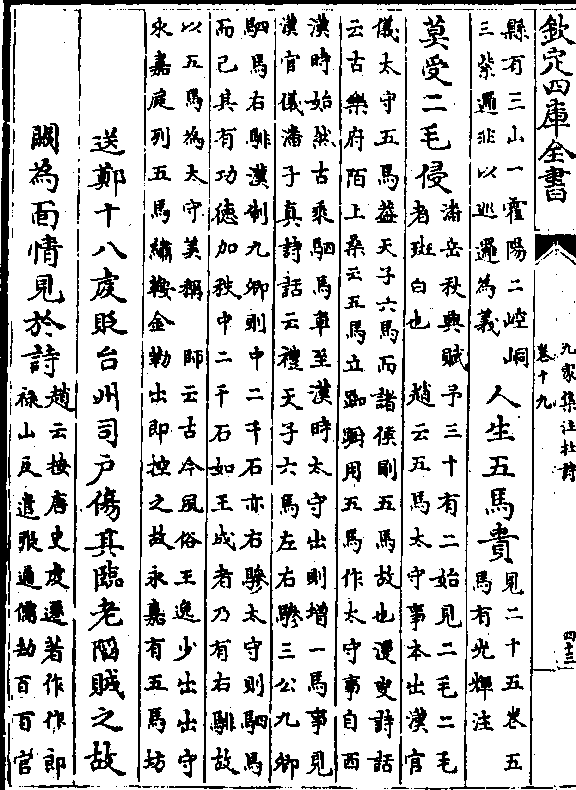 欽定四庫全書
九家集注杜詩
卷十九
四十三
縣有三山一霍陽二崆峒
三紫邏非以巡邏為義
人生五馬貴
見二十五卷五
馬有光輝注
莫受二毛侵
潘岳秋興賦予三十有二始見二毛二毛
者斑白也 趙云五馬太守事本出漢官
儀太守五馬蓋天子六馬而諸侯則五馬故也遯叟詩話
云古樂府陌上桑云五馬立踟躕用五馬作太守事自西
漢時始然古乘駟馬車至漢時太守出則增一馬事見
漢官儀潘子真詩話云禮天子六馬左右驂三公九卿
駟馬右騑漢制九卿則中二千石亦右驂太守則駟馬
而已其有功德加秩中二千石如王成者乃有右騑故
以五馬為太守美稱 師云古今風俗王逸少出出守
永嘉庭列五馬繡鞍金勒出即控之故永嘉有五馬坊
送鄭十八虔貶台州司戶傷其臨老陷賊之故
闕為面情見於詩
趙云按唐史虔遷著作作郎
祿山反遣張通儒劫百百官